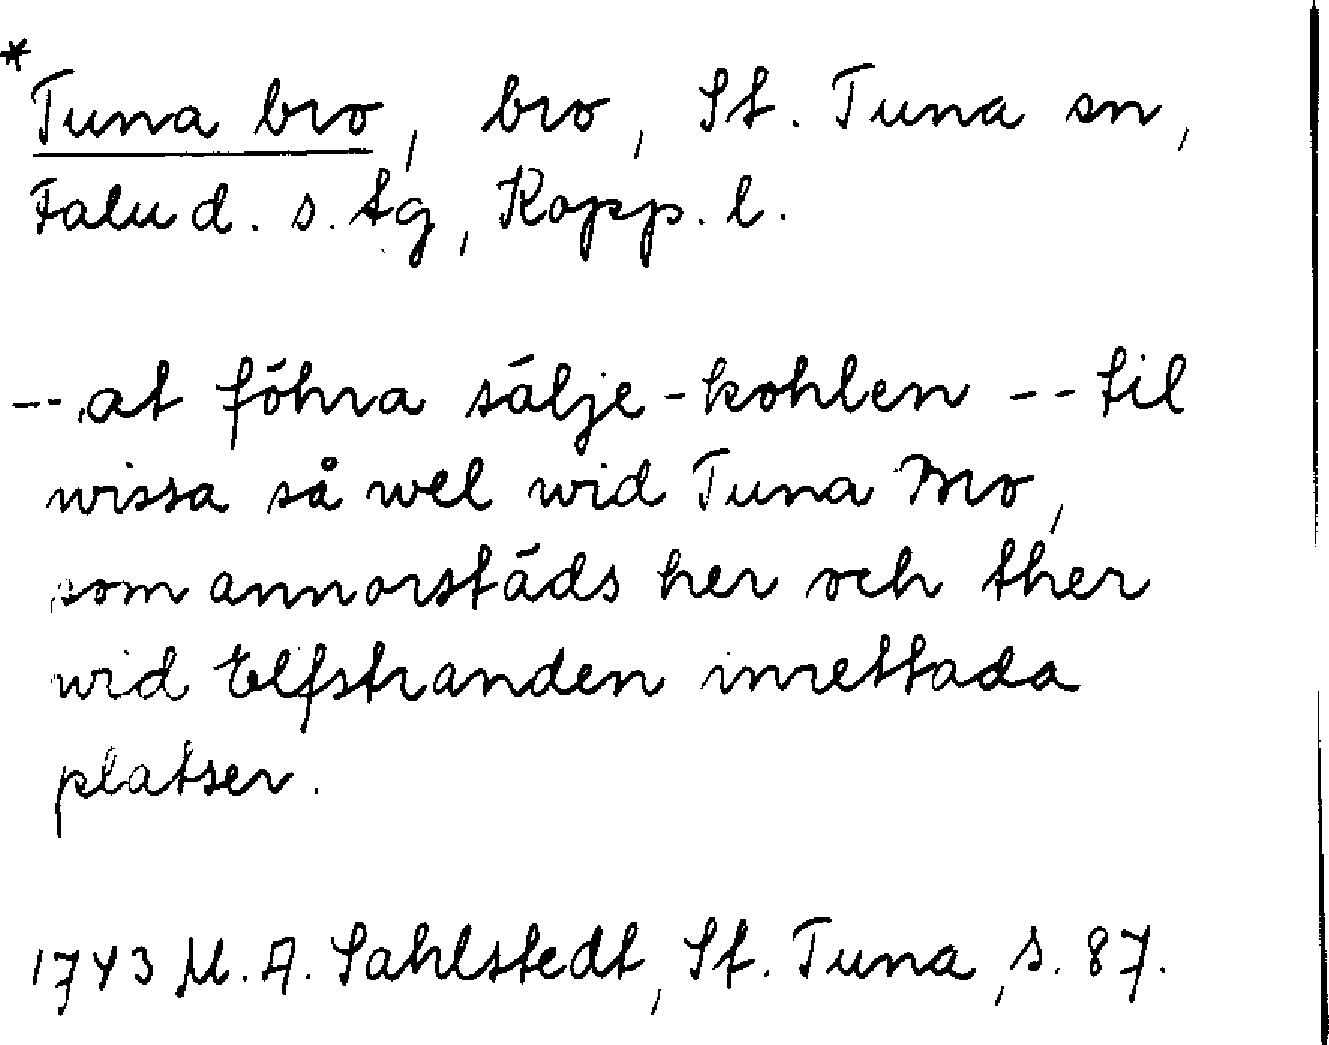 *
Tuna bro, bro, St. Tuna sn,
Falu d. s. tg, Kopp. l.
--at föhra sälje-kohlen -- til
wissa så wel wid Tuna Bro,
som annorstäds her och ther
wid Elfstranden inrettada
platser.
1743 M. A. Sahlstedt, St. Tuna, s. 87.